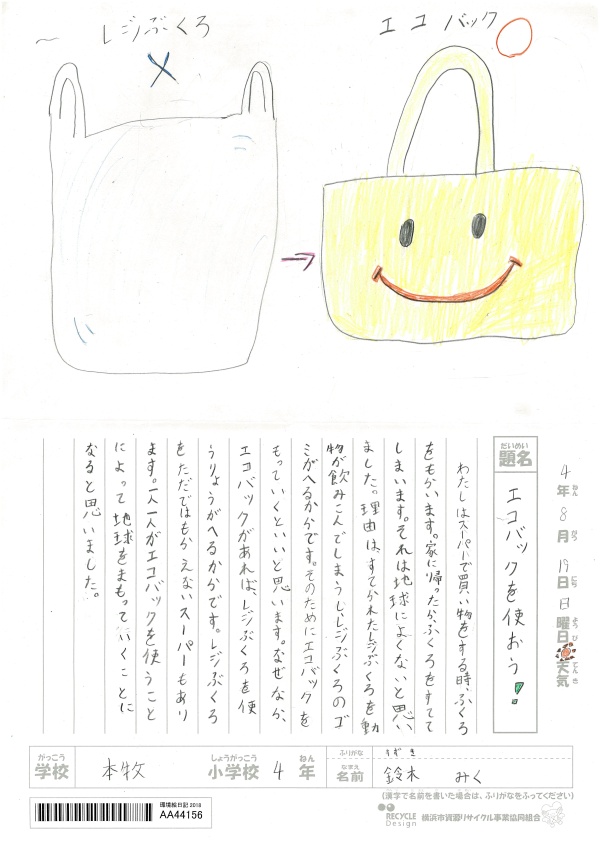 レジぶくろ
エコバック
4年ねん8月がつ19日にち日曜日ようび天気てんき
題名だいめい
エコバックを使おう!
わたしはスーパーで買い物をする時、ふくろ
をもらいます。家に帰ったらふくろをすてて
しまいます。それは地球によくないと思い
ました。理由は、すてられたレジぶくろを動
物が飲みこんでしまうし、レジぶくろのゴ
ミがへるからです。そのためにエコバックを
もっていくといいと思います。なぜなら、
エコバックがあれば、レジぶくろを使
うりょうがへるからです。レジぶくろ
をただではもらえないスーパーもあり
ます。一人一人がエコバックを使うこと
によって地球をまもっていくことに
なると思いました。
学校がっこう 本牧 小学校しょうがっこう 4 年ねん
ふりがな すずき
名前なまえ 鈴木 みく
(漢字で名前を書いた場合は、ふりがなをふってください)
環境絵日記 2018
AA44156
RECYCLE Design 横浜市資源リサイクル事業協同組合